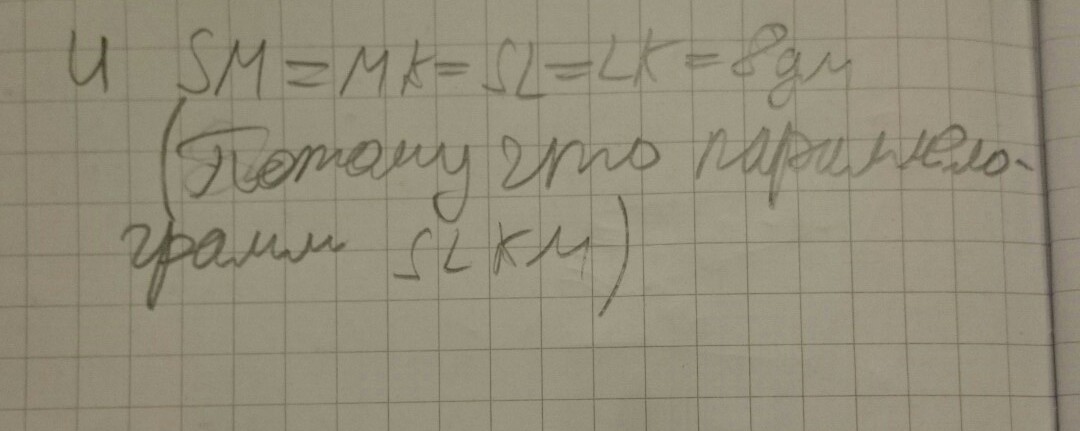 И SM = MK = SL = LK = 8 дм
(Потому что параллело-
грамм SLKM)